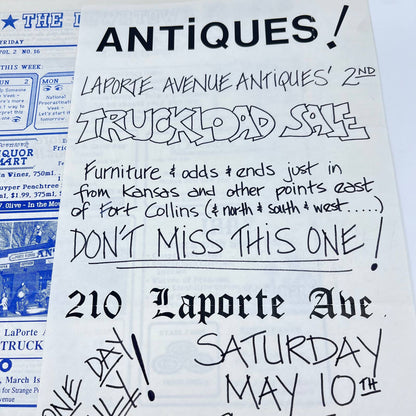 ★ THE
FRIDAY
VOL 2 NO. 16
THIS WEEK:
SUN 2
MON
Up Someone
Week -
're's more
n't way to
rpret this
one -
National
Procrastinati
Week -
Let's start it
tomorrow.
IQUOR
MART
a Wines, 750ml,
uyper Peachtree
l, $1.99, 375ml,
7. Olive - In the Mow
LaPorte A
TRUCK
, March Is
for Strange P
venue
ANTIQUES!
LAPORTE AVENUE ANTIQUES' 2ND
TRUCKLOAD SALE
Furniture & odds & ends just in
from Kansas and other points east
of Fort Collins (& north & south & west.....)
DON'T MISS THIS ONE!
210 Laporte Ave.
ONE DAY
ONLY!
SATURDAY
MAY 10TH